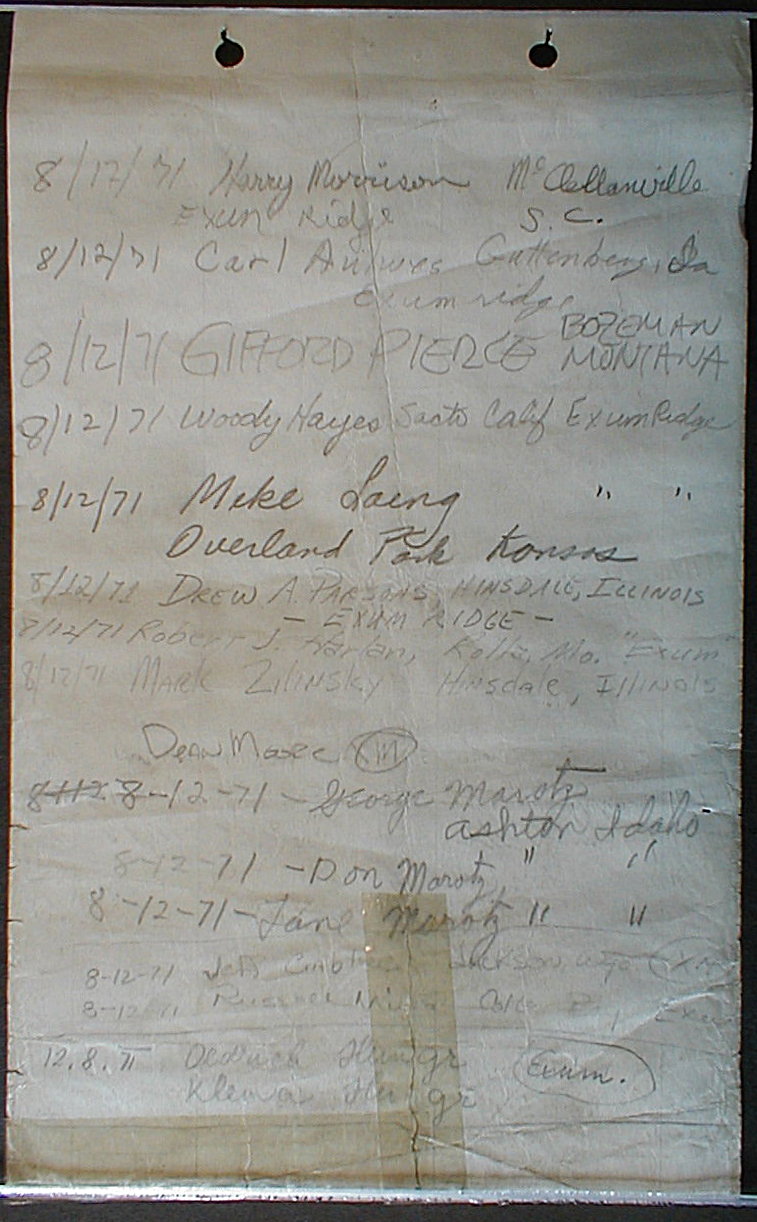 8/12/71 Harry Morrison McClellanville
Exum Ridge S.C.
8/12/71 Carl Guttenberg, Ia
Exum ridge
8/12/71 GIFFORD PIERCE BOZEMAN
MONTANA
8/12/71 Woody Hayes Sacto Calif Exum Ridge
8/12/71 Mike Laing " "
Overland Park Kansas
8/12/71 DREW A. PARSONS HINSDALE, ILLINOIS
- EXUM RIDGE -
8/12/71 Robert J. Harlan, Rolla, Mo. "Exum"
8/12/71 MARK ZILINSKY Hinsdale, Illinois
Dean Moore XM
8-12-71 - George Marotz
Ashton Idaho
8-12-71 - Don Marotz " "
8-12-71 - Jane Marotz " "
8-12-71 Jackson Wyo XM
8-12-71 Exum
12.8.71 Oldrich Exum.